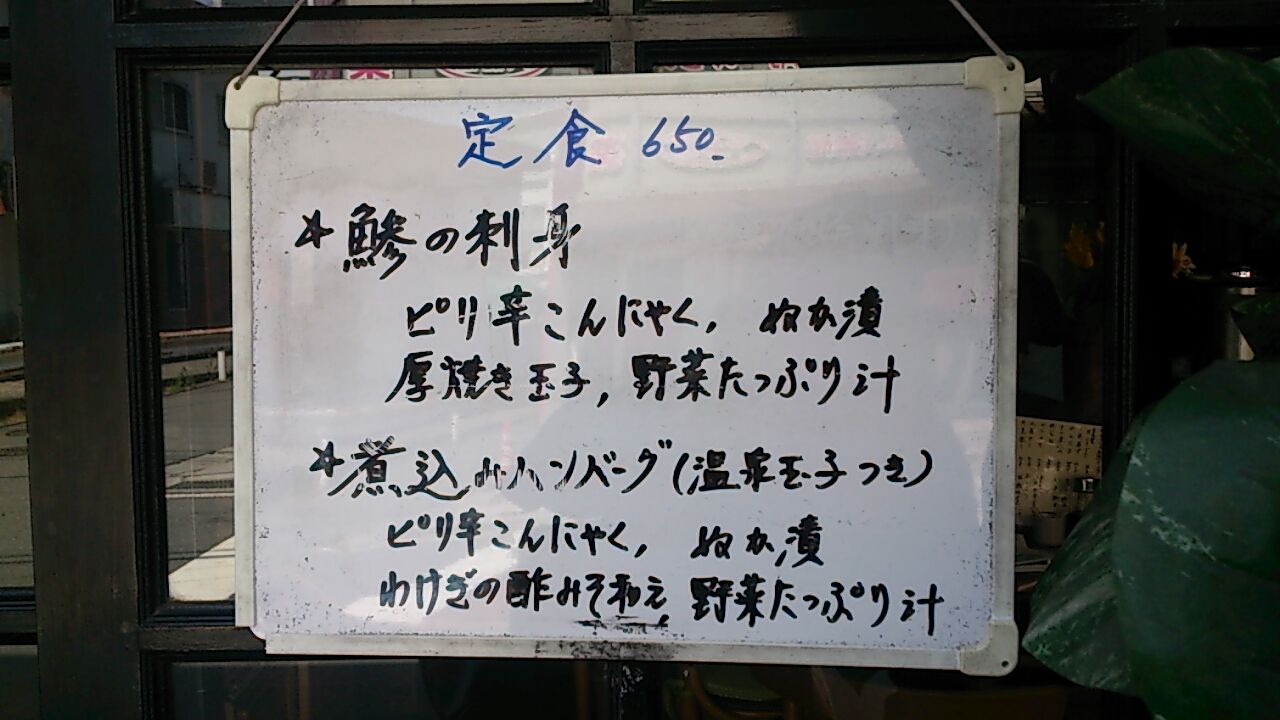 定食 650.
☆鯵の刺身
ピリ辛こんにゃく, ぬか漬
厚焼き玉子, 野菜たっぷり汁
☆煮込みハンバーグ(温泉玉子つき)
ピリ辛こんにゃく, ぬか漬
わけぎの酢みそ和え, 野菜たっぷり汁